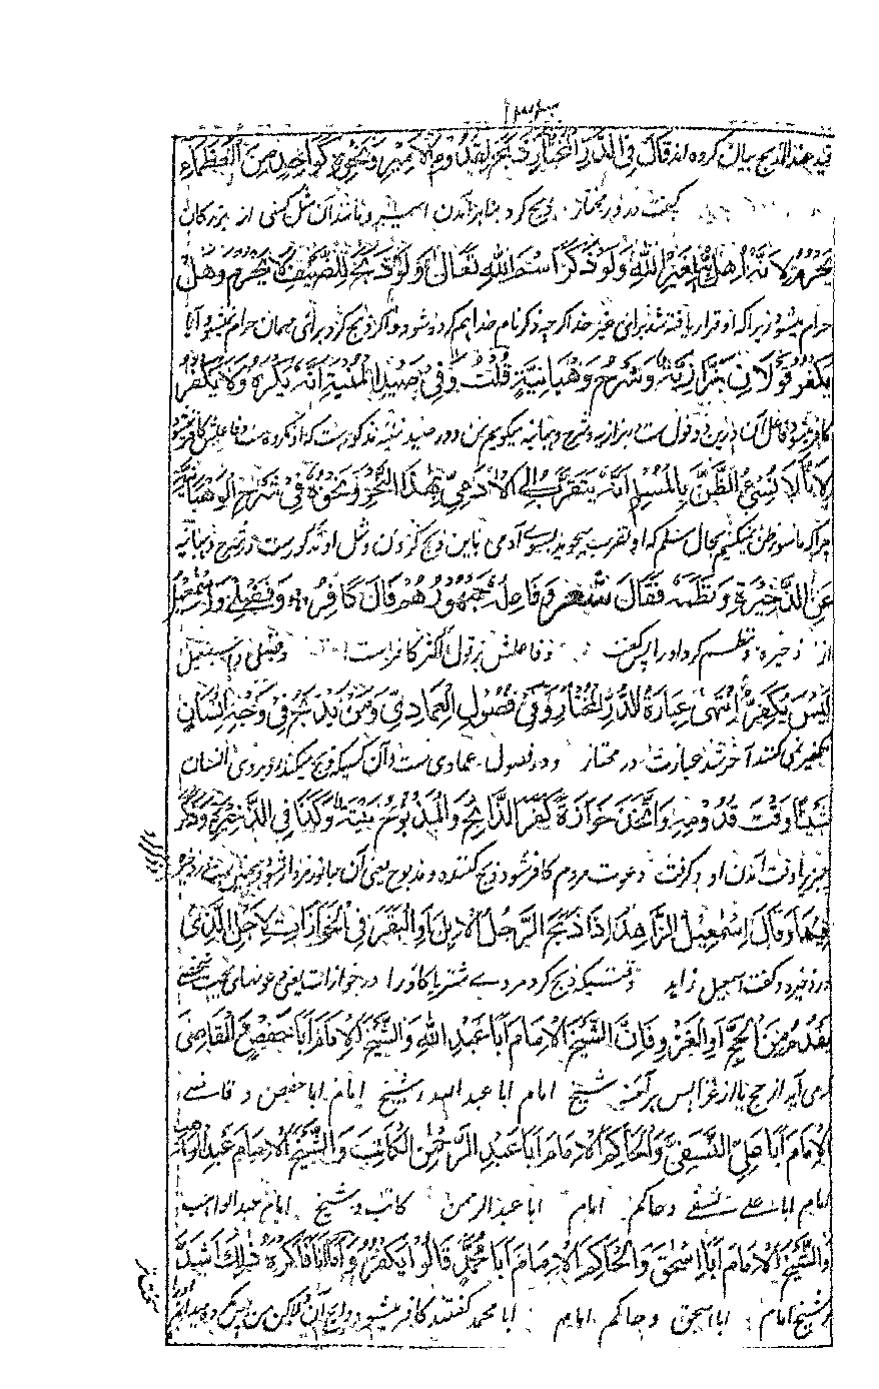 قید عند الذبح بیان کرده اند قَالَ فِی الدُّرِّ الْمُخْتَارِ ذَبَحَ لِقُدُوْمِ الْاَمِیْرِ وَنَحْوِهٖ کَوَاحِدٍ مِنَ الْعُظَمَاءِ
گفت در در مختار ذبح کرد بنابر آمدن امیر و مانند آن مثل کسی از بزرگان
یَحْرُمُ لِاَنَّهٗ اُهِلَّ بِهٖ لِغَیْرِ اللّٰهِ وَلَوْ ذُکِرَ اسْمُ اللّٰهِ تَعَالٰی وَلَوْ ذَبَحَ لِلضَّیْفِ لَا یَحْرُمُ وَهَلْ
حرام میشود زیرا که او قرار یافته شد برای غیر خدا اگرچه ذکر نام خدا هم کرده شود و اگر ذبح کرد برای مهمان حرام نمیشود آیا
یَکْفُرُ قَوْلَانِ بَزَّازِیَّه وَشَرْحُ وَهْبَانِیَّةٍ قُلْتُ وَفِیْ صَیْدِ الْمُنْیَةِ اَنَّهٗ یُکْرَهُ وَلَا یَکْفُرُ
کافر میشود فاعل آن درین دو قول ست بزازیه و شرح وهبانیه میگویم من و در صید منیه مذکورست که او مکروه ست و فاعلش کافر نمیشود
لِاَنَّا لَا نُسِیْءُ الظَّنَّ بِالْمُسْلِمِ اَنَّهٗ یَتَقَرَّبُ اِلَی الْاٰدَمِیِّ بِهٰذَا النَّحْرِ وَنَحْوُهٗ فِیْ شَرْحِ الْوَهْبَانِیَّةِ
چرا که ما سوء ظن نمیکنیم بحال مسلم که او تقرب میجوید بسوی آدمی باین ذبح کردن و مثل او مذکورست در شرح وهبانیه
عَنِ الذَّخِیْرَةِ وَنَظَمَهٗ فَقَالَ شعر وَفَاعِلُهٗ جُمْهُوْرُهُمْ قَالَ کَافِرٌ ؞ وَفَضْلِیْ وَاِسْمٰعِیْلُ
از ذخیره و نظم کرد او را پس گفت وفاعلش بر قول اکثر کافرست وفضلی و اسمعیل
لَیْسَ یُکَفِّرُ اِنْتَهٰی عِبَارَةُ الدُّرِّ الْمُخْتَارِ وَفِیْ فُصُوْلِ الْعِمَادِیِّ وَمَنْ یَذْبَحُ فِیْ وَجْهِ اِنْسَانٍ
تکفیر نمی کنند آخر شد عبارت در مختار و در فصول عمادی ست و آن کسیکه ذبح میکند روبروی انسان
شَیْئًا وَقْتَ قُدُوْمِهٖ وَاتَّخَذَ جَوَازَةً کَفَرَ الذَّابِحُ وَالْمَذْبُوْحُ مَیْتَةٌ وَکَذَا فِی الذَّخِیْرَةِ وَذُکِرَ
چیزی را وقت آمدن او و گرفت دعوت مردم کافر شود ذبح کننده و مذبوح یعنی آن جانور مردار شود و همچنین ست در ذخیره
فِیْهَا وَقَالَ اِسْمٰعِیْلُ الزَّاهِدُ اِذَا ذَبَحَ الرَّجُلُ الْاِبِلَ اَوِ الْبَقَرَ فِی الْجَوَازَاتِ لِاَجْلِ الَّذِیْ
در ذخیره و گفت اسمعیل زاهد وقتیکه ذبح کرد مردے شتر یا گاو را در جوازات یعنی دعوتهای بجهت شخصے
یَقْدَمُ مِنَ الْحَجِّ اَوِ الْغَزْوِ فَاِنَّ الشَّیْخَ الْاِمَامَ اَبَا عَبْدِ اللّٰهِ وَالشَّیْخَ الْاِمَامَ اَبَا حَفْصٍ وَالْقَاضِیَ
که می آید از حج یا از غزا پس بر آمد شیخ امام ابا عبد الله و شیخ امام ابا حفص و قاضے
الْاِمَامَ اَبَا عَلِیِّ النَّسَفِیَّ وَالْحَاکِمَ الْاِمَامَ اَبَا عَبْدِ الرَّحْمٰنِ الْکَاتِبَ وَالشَّیْخَ الْاِمَامَ عَبْدَ الْوَاحِدِ
امام ابا علے نسفے و حاکم امام ابا عبد الرحمن کاتب و شیخ امام عبد الواحد
وَالشَّیْخَ الْاِمَامَ اَبَا اِسْحٰقَ وَالْحَاکِمَ الْاِمَامَ اَبَا مُحَمَّدٍ قَالُوْا یَکْفُرُ وَاَمَّا اَنَا فَاَکْرَهُ ذٰلِکَ اَشَدَّ
و شیخ امام ابا اسحق و حاکم امام ابا محمد گفتند کافر میشود